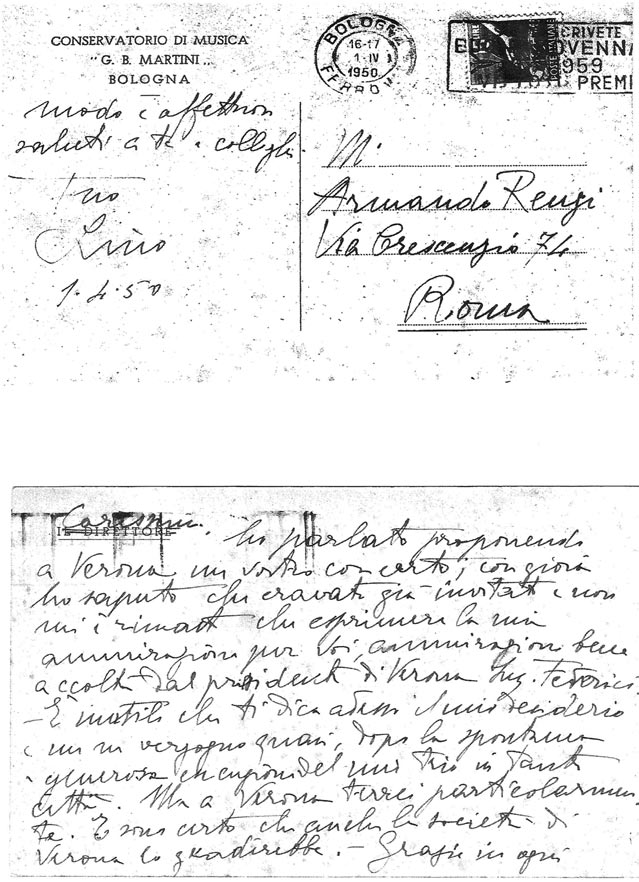 CONSERVATORIO DI MUSICA
"G. B. MARTINI"
BOLOGNA
modo e affettuosi
saluti a te e colleghi
Tuo
Lino
1.4.50
BOLOGNA
16-17
1-IV
1950
FERROV
CRIVETE
OVENNA
959
PREMI
POSTE ITALIANE
M.
Armando Renzi
Via Crescenzio 74
Roma
IL DIRETTORE
Carissimi.
ho parlato proponendo
a Verona un vostro concerto; con gioia
ho saputo che eravate già invitati e non
mi è rimasto che esprimere la mia
ammirazione per voi, ammirazione bene
accolta dal president di Verona Ing. Federici
- È inutile che ti dica adesso il mio desiderio
e me ne vergogno quasi, dopo la spontanea
e generosa del mio trio in tante
città. Ma a Verona terrei particolarmen
te. E sono certo che anche la società di
Verona lo gradirebbe. - Grazie in ogni